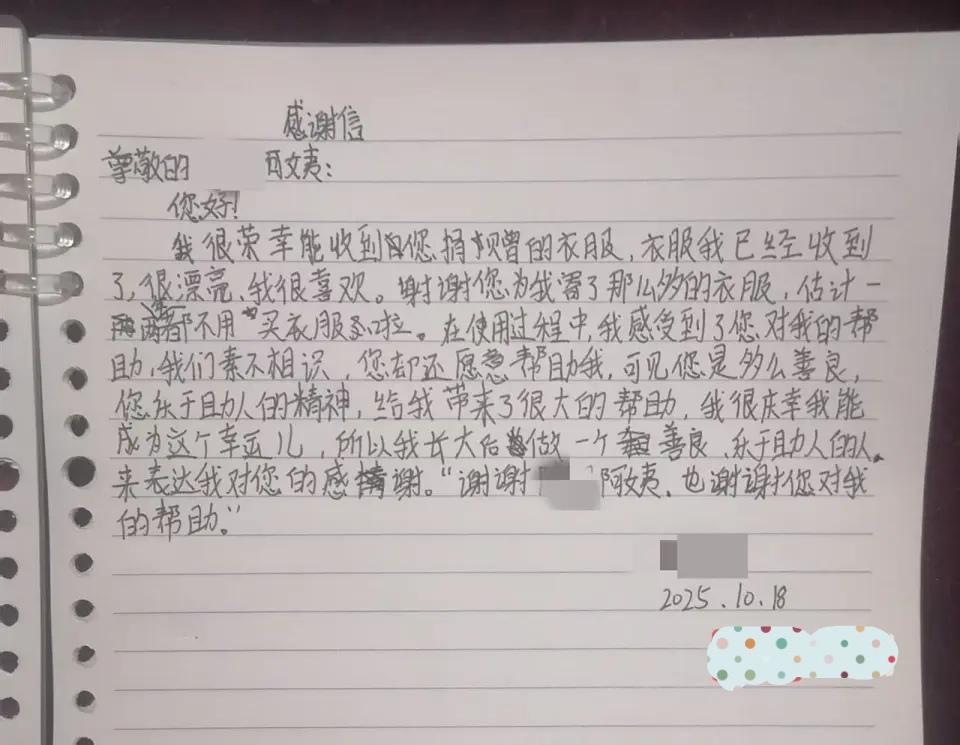 感谢信
尊敬的 阿姨：
您好！
我很荣幸能收到您捐赠的衣服，衣服我已经收到
了，很漂亮，我很喜欢。谢谢您为我寄了那么多的衣服，估计一
两年都不用买衣服啦。在使用过程中，我感受到了您对我的帮
助，我们素不相识，您却还愿意帮助我，可见您是多么善良，
您乐于助人的精神，给我带来了很大的帮助，我很庆幸我能
成为这个幸运儿，所以我长大后做一个善良、乐于助人的人
来表达我对您的感谢。“谢谢 阿姨，也谢谢您对我
的帮助。”
2025.10.18